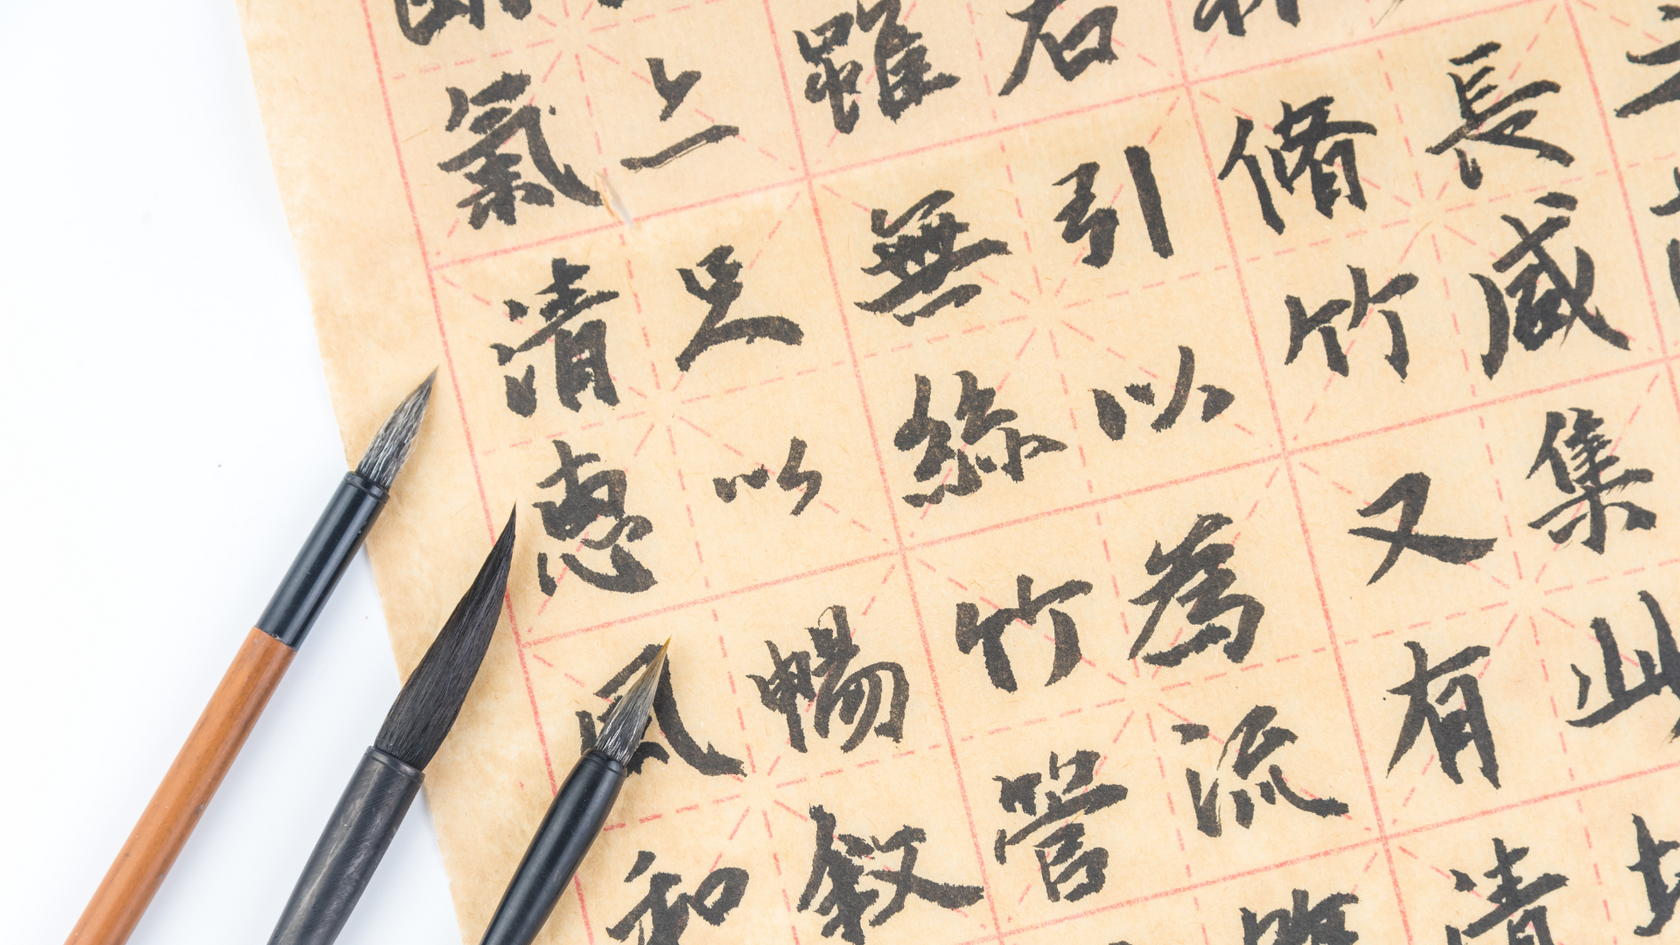 長咸集此
脩竹又有清
右引以為流
雖無絲竹管
上足以暢敘
氣清惠風和